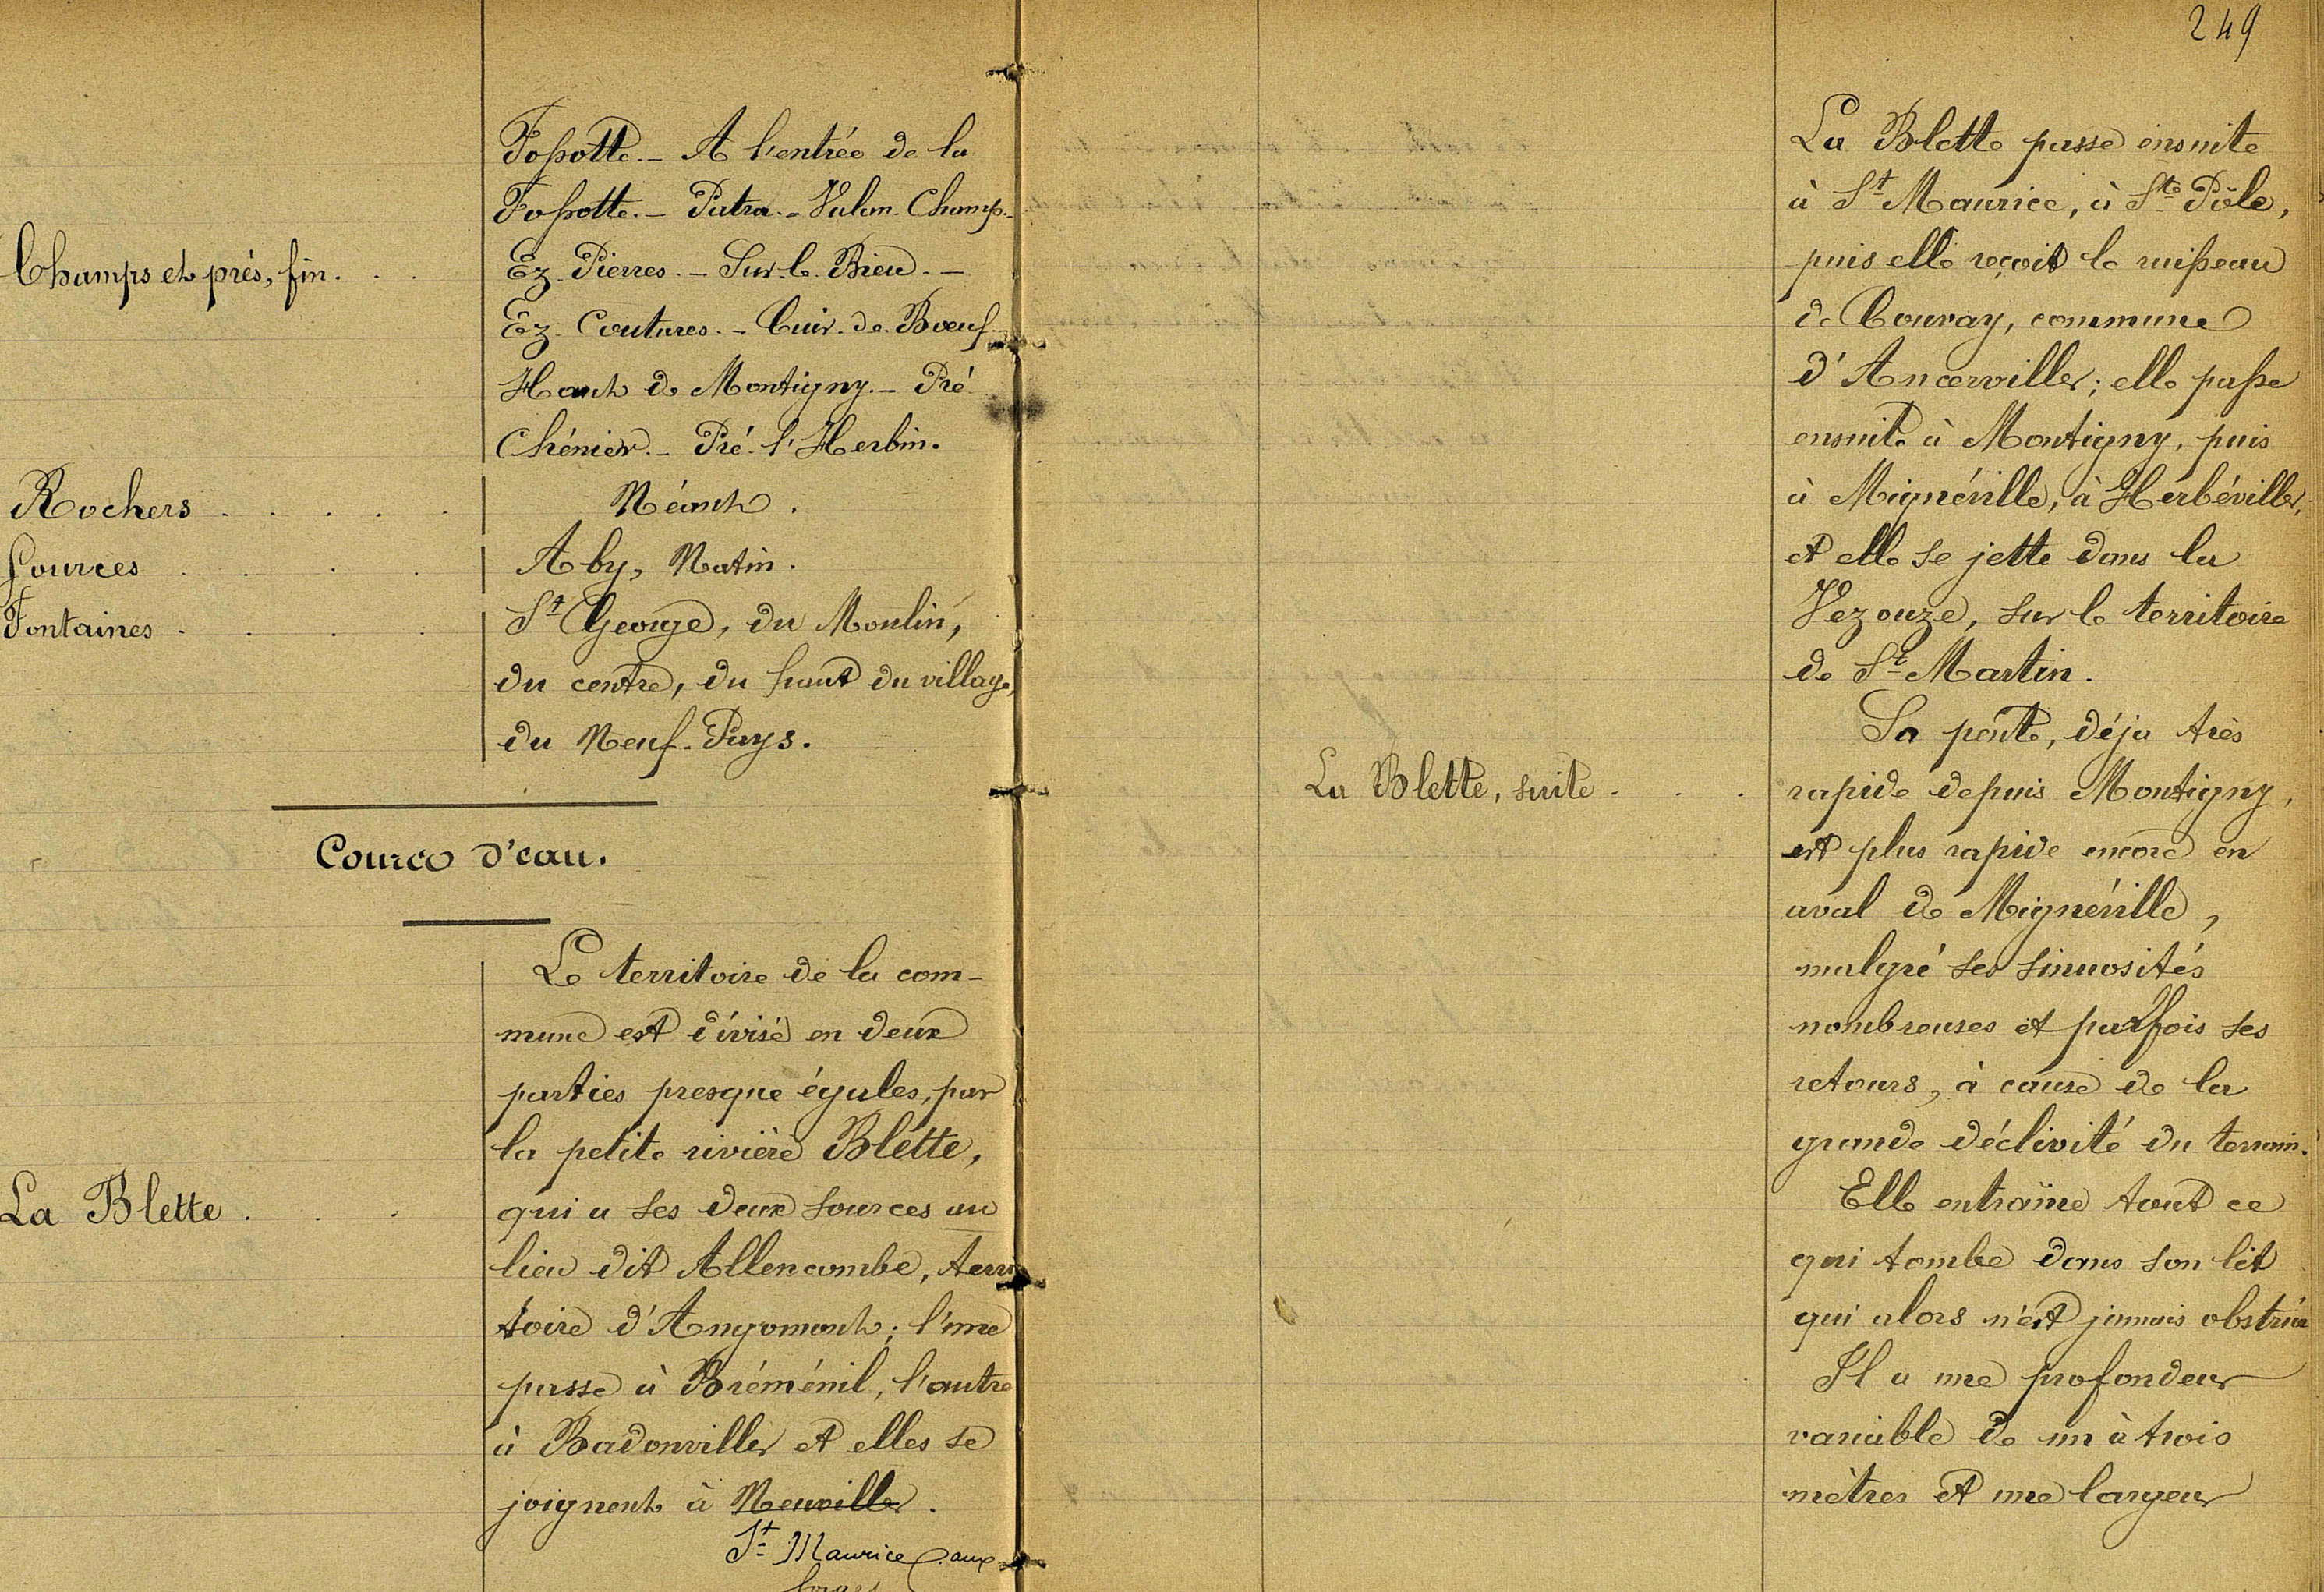 Fossotte. - A l'entrée de la
Fossotte. - Patra. - Valan. Champ. -
Champs et prés, fin. . . Ez. Pierres. - Sur-le-Bieu. -
Ez. Coutures. - Cuir. de. Bœuf. -
Haut de Montigny. - Pré
Chénier. - Pré. l'Herbin.
Rochers . . . . . Néant.
Sources . . . . Aby, Natin.
Fontaines . . . . St George, du Moulin,
du centre, du haut du village,
du Neuf-Pays.
Cours d'eau.
Le territoire de la com-
mune est divisé en deux
parties presque égales, par
la petite rivière Blette,
La Blette . . . qui a ses deux sources au
lieu dit Allencombe, terri
toire d'Angomont; l'une
passe à Bréménil, l'autre
à Badonviller et elles se
joignent à Neuviller.
St Maurice aux
forges
249
La Blette passe ensuite
à St Maurice, à Ste Pôle,
puis elle reçoit le ruisseau
de Couvay, commune
d'Ancerviller; elle passe
ensuite à Montigny, puis
à Mignéville, à Herbéviller,
et elle se jette dans la
Vezouze, sur le territoire
de St Martin.
Sa pente, déja très
La Blette, suite . . . rapide depuis Montigny,
est plus rapide encore en
aval de Mignéville,
malgré ses sinuosités
nombreuses et parfois ses
retours, à cause de la
grande déclivité du terrain.
Elle entraîne tout ce
qui tombe dans son lit
qui alors n'est jamais obstrué
Il a une profondeur
variable de un à trois
mètres et une largeur